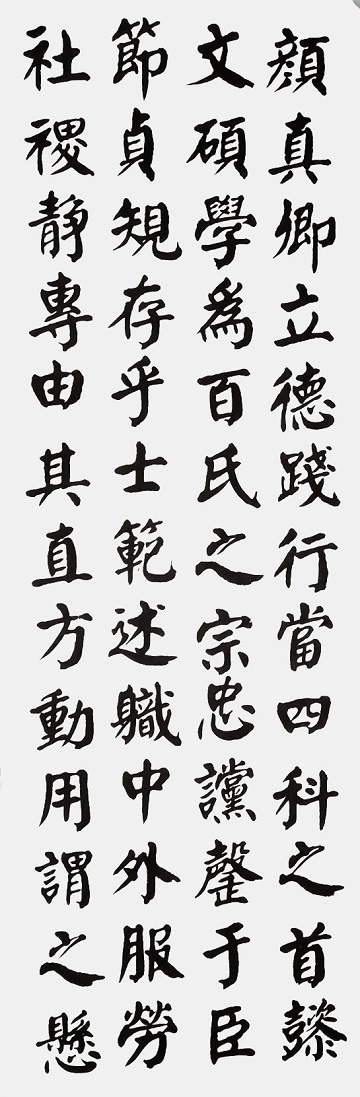 顔真卿立德踐行當四科之首懿
文碩學爲百氏之宗忠讜罄于臣
節貞規存乎士範述軄中外服勞
社禝静專由其直方動用謂之懸